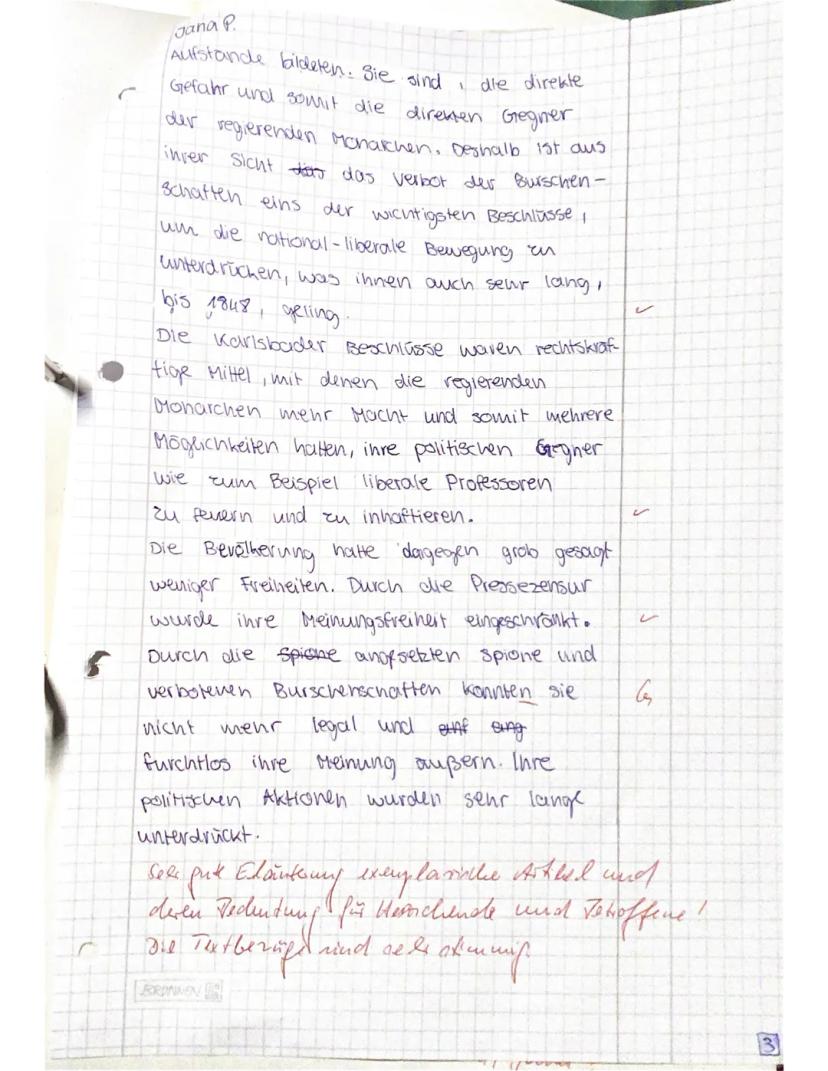 Jana P.
Aufstände bildeten. Sie sind, die direkte
Gefahr und somit die direkten Gegner
der regierenden Monarchen. Deshalb ist aus
ihrer Sicht das das Verbot der Burschen-
schaften eins der wichtigsten Beschlüsse,
um die national-liberale Bewegung zu
unterdrücken, was ihnen auch sehr lang,
bis 1848, geling.
Die Karlsbader Beschlüsse waren rechtskräf-
tige Mittel, mit denen die regierenden
Monarchen mehr Macht und somit mehrere
Möglichkeiten hatten, ihre politischen Gegner
wie zum Beispiel liberale Professoren
zu feuern und zu inhaftieren.
Die Bevölkerung hatte dagegen grob gesagt
weniger Freiheiten. Durch die Pressezensur
wurde ihre Meinungsfreiheit eingeschränkt.
Durch die Spione angesetzten Spione und
verbotenen Burschenschaften konnten sie
G
nicht mehr legal und
furchtlos ihre Meinung äußern. Ihre
politischen Aktionen wurden sehr lange
unterdrückt.
Sehr gute Erläuterung exemplarische Artikel und
deren Bedeutung für Herrschende und Betroffene!
Die Textbezüge sind sehr stimmig
BRUNNEN
3